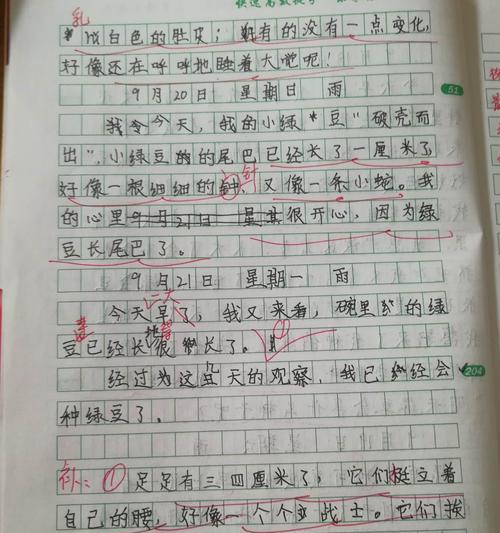 乳
白色的肚皮；还有的没有一点变化，
好像还在呼呼地睡着大觉呢！
9月20日 星期日 雨
51
今天，我的小绿“豆”破壳而
出”，小绿豆的尾巴已经长了一厘米了
好像一根细细的针又像一条小蛇。我
的心里9月21日 星期很开心，因为绿
豆长尾巴了。
9月21日 星期一 雨
今天早了，我又来看，碗里的绿
豆已经长很长了。①
经过为这几天的观察，我已经会
204
种绿豆了。
补：①足足有三四厘米了，它们挺立着
自己的腰，好像一个个战士。它们挨